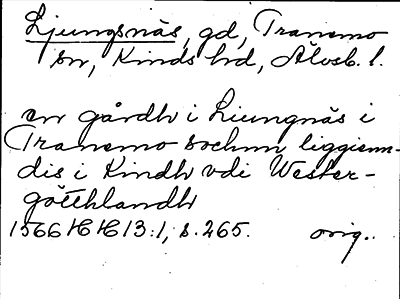 Ljungsnäs, gd, Tranemo
sn, Kinds hd, Älvsb. l.
en gårdh i Liungnäs i
Tranemo sochnn liggienn-
dis i Kindh vdi Wester-
götthlandh
1566 HH 13:1, s. 265. orig..